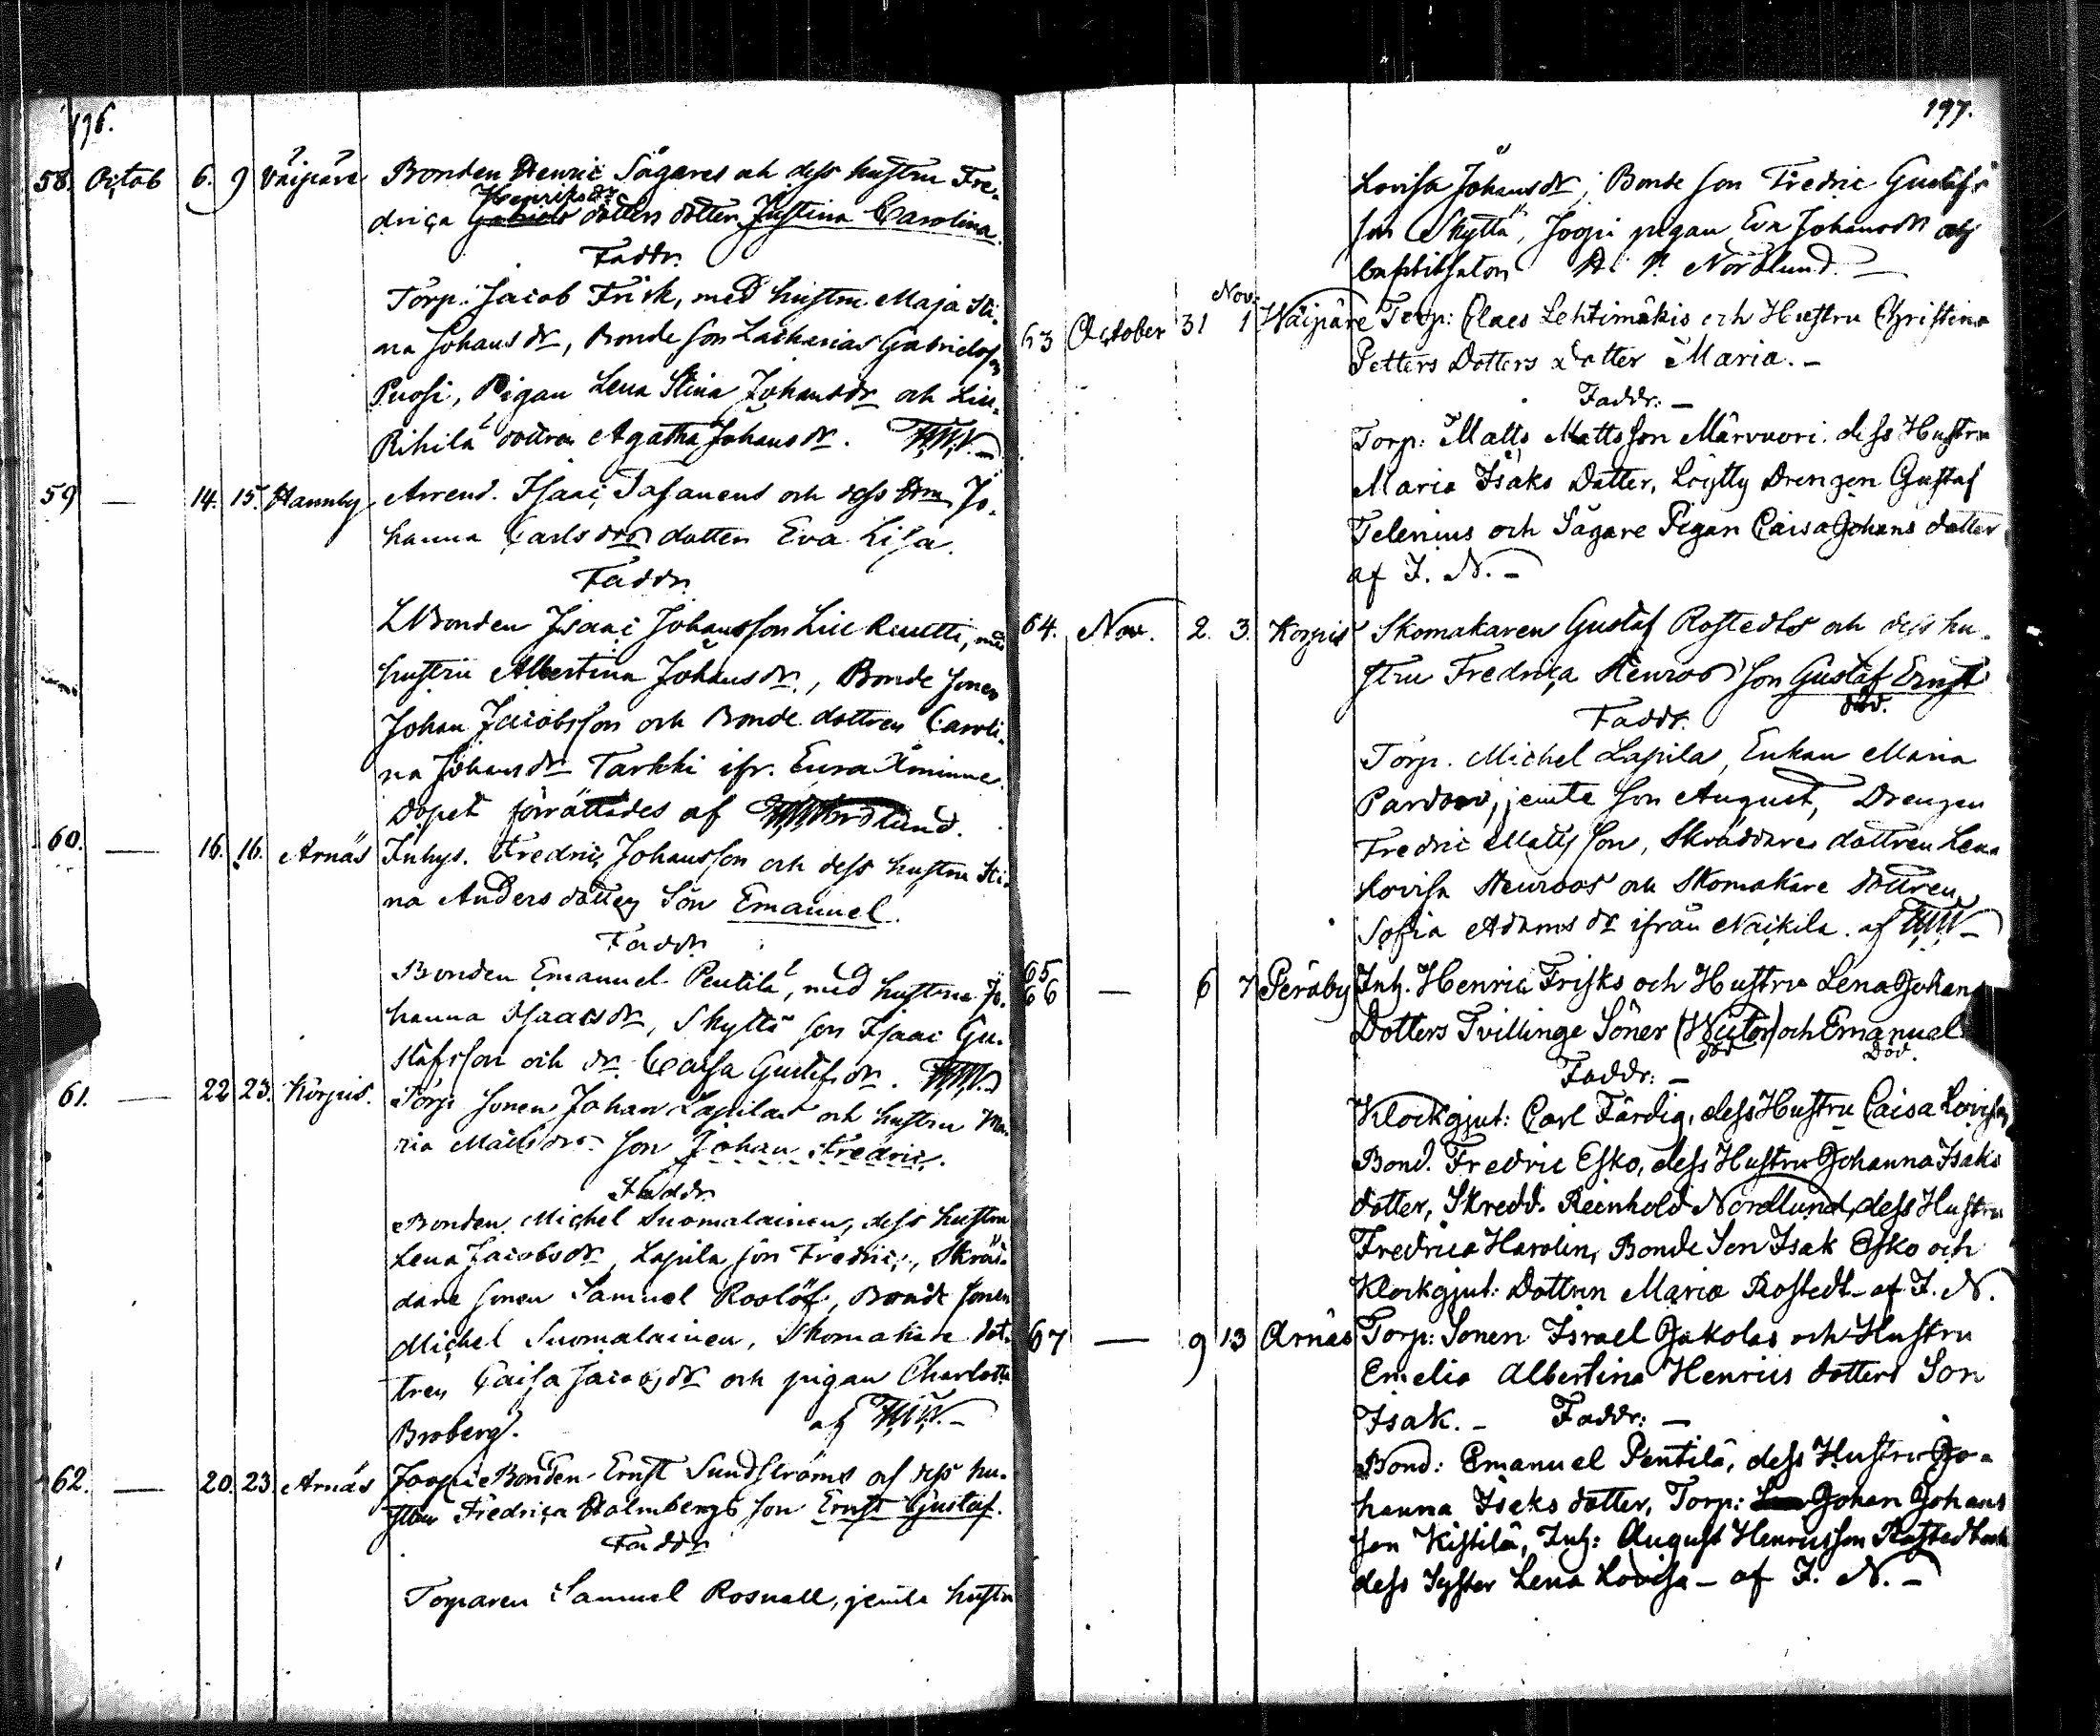 196.
58. Octob 6. 9 Väipäre Bonden Henric Sägares och dess hustru Fre-
Henriksdr
drica dotters dotter Justina Carolina.
Faddr.
Torp. Jacob Frisk, med hustru Maja Sti-
na Johansdr, Bonde son Zacharias Gabrielsson
Puosi, Pigan Lena Stina Johansdr och
Rihilä dottren Agatha Johansdr.
59 — 14. 15. Hannby Arrend. Isaac och dess Jo-
hanna Carlsdrs dotter Eva Lisa.
Faddr.
Bonden Isaac Johansson, med
hustru Albertina Johansdr, Bonde sonen
Johan Jacobsson och Bonde dottren Caroli-
na Johansdr Tarkki ifr. Eura Åminne.
Dopet förrättades af
60. — 16. 16. Arnäs Inhys. Fredric Johansson och dess hustru Sti-
na Anders dotters Son Emanuel.
Faddr.
Bonden Emanuel Pentilä, med hustru Jo-
hanna Isaacsdr, Skyttä son Isaac Gu-
stafsson och dr. Caisa Gustafsdr.
61. — 22 23. Korpis. Torp. sonen Johan Lapilas och hustru Ma-
ria Mattsdrs son Johan Fredric.
Faddr.
Bonden Michel Suomalainen, dess hustru
Lena Jacobsdr, Lapila son Fredric, Skräd-
dare sonen Samuel Roslöf, Bonde sonen
Michel Suomalainen, Skomakare dot-
tren Caisa Jacobsdr och pigan Charlotta
Broberg. af
62. — 20. 23 Arnäs Joopi Bonden Ernst Sundströms och dess hu-
stru Fredrica Holmbergs son Ernst Gustaf.
Faddr.
Torparen Samuel Rosnell, jemte hustru
197.
Lovisa Johansdr, Bonde son Fredric Gustafs
son Skyttä, Joopi pigan Eva Johansdr
Nordlund.
Nov.
63 October 31 1 Wäipäre Torp: Claes Lehtimäkis och Hustru Christina
Petters Dotters Dotter Maria. —
Faddr: —
Torp: Matts Mattsson Märvuori dess Hustru
Maria Isaks Dotter, Löytty Drengen Gustaf
Telenius och Sägare Pigan Caisa Johans dotter
af F. N. —
64. Nov. 2. 3. Korpis Skomakaren Gustaf Rostedts och dess hu-
stru Fredrica Stenroos son Gustaf Ernst
död.
Faddr.
Torp. Michel Lapila, Enkan Maria
jemte son August, Drengen
Fredric Mattsson, Skräddare dottren Lena
Lovisa Stenroos och Skomakare dottren
Sofia Adamsdr ifrån Naikila. af
65
66 — 6 7 Peräby Inh. Henric Frisks och Hustru Lena Johans
Dotters Tvillinge Söner (Victor) och Emanuel
död Död.
Faddr: —
Klockgjut: Carl Färdig, dess Hustru Caisa Lovisa,
Bond. Fredric Esko, dess Hustru Johanna Isaks
dotter, Skredd. Reinhold Nordlund, dess Hustru
Fredrica Harolin, Bonde Son Isak Esko och
Klockgjut: Dottren Maria Rostedt — af F. N.
67 — 9 13 Arnäs Torp: Sonen Israel Jakolas och Hustru
Emelia Albertina Henrics dotters Son
Isak. — Faddr: —
Bond: Emanuel Pentilä, dess Hustru Jo-
hanna Isaks dotter, Torp: Johan Johans
son Kistilä, Inh: August Henricsson Rostedt och
dess Syster Lena Lovisa — af F. N. —